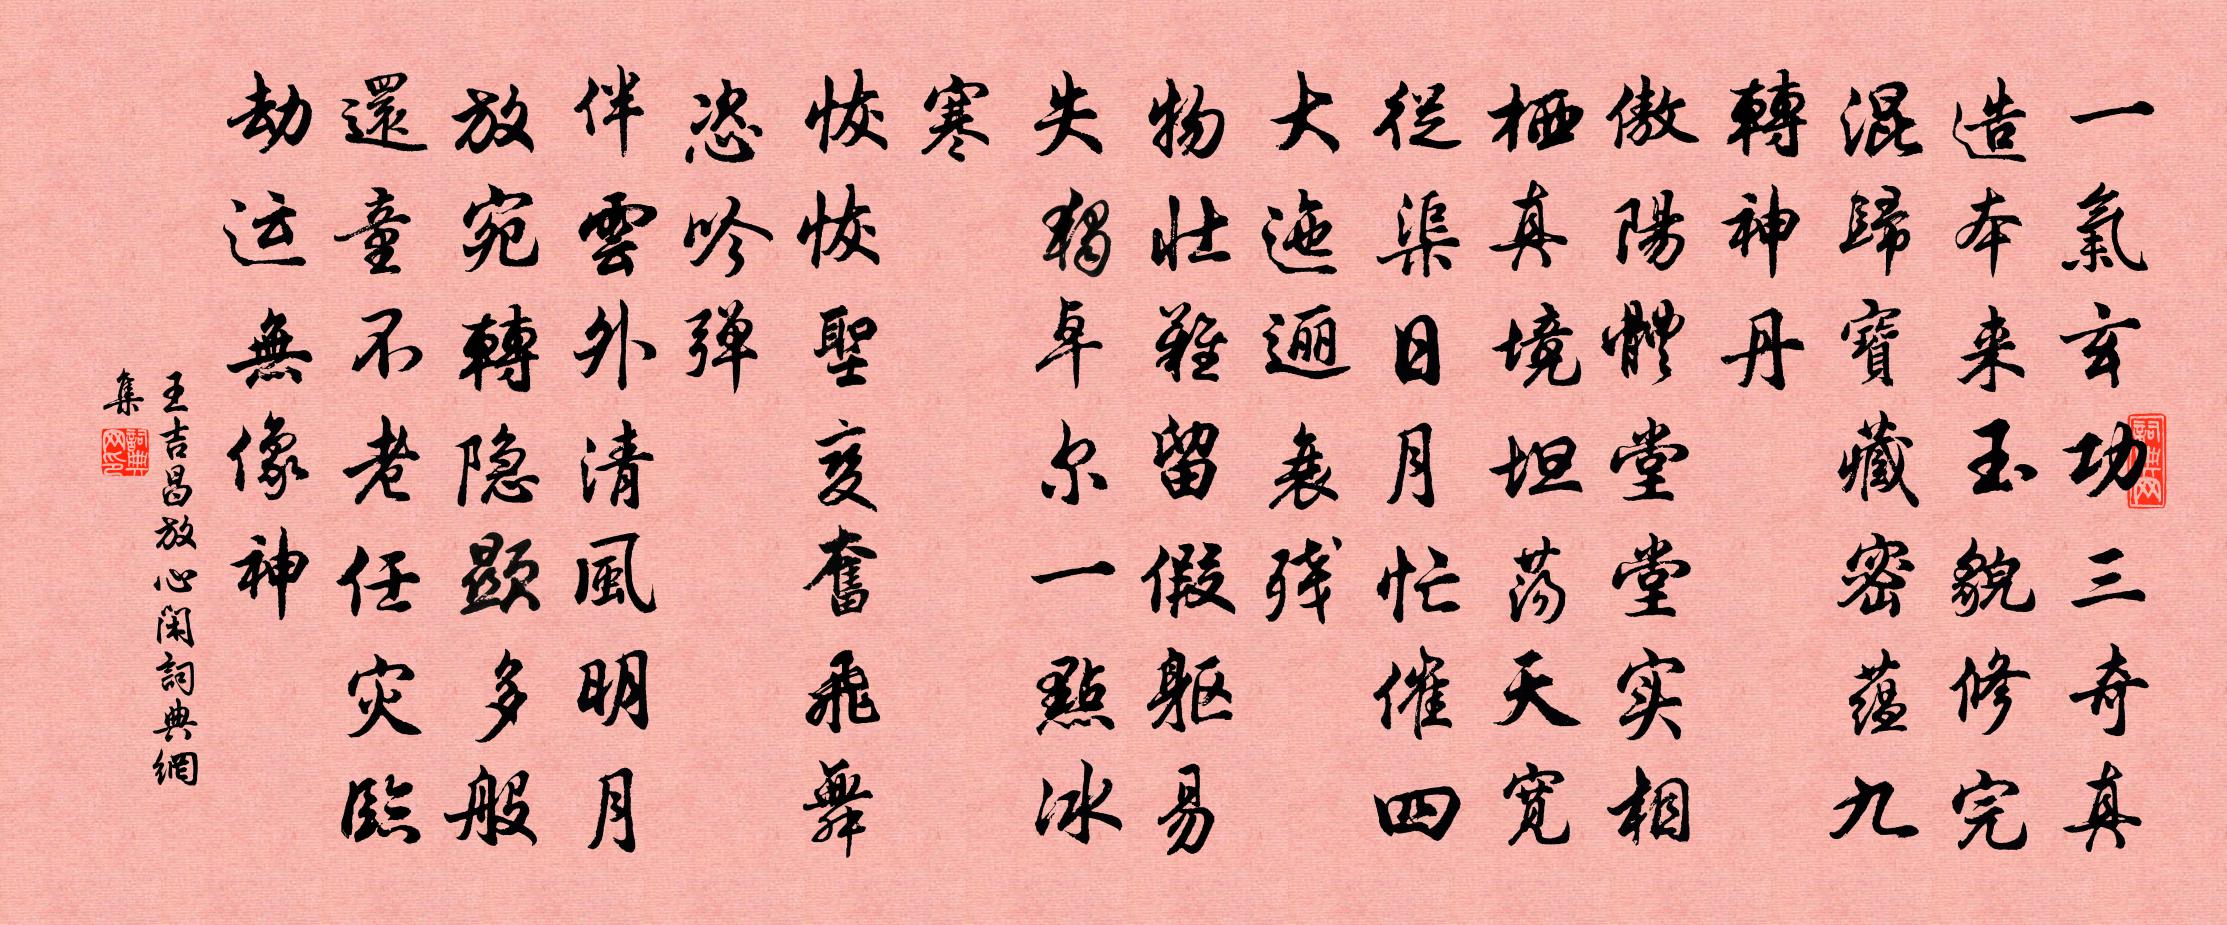 一氣玄功三奇真
造本来玉貌修完
混歸寶藏密蕴九
轉神丹
傲陽體堂堂实相
栖真境坦荡天寬
從渠日月忙催四
大迤逦衰残
物壮難留假躯易
失獨卓尔一點冰
寒
恢恢聖变奮飛舞
恣吟弹
伴雲外清風明月
放宛轉隐顯多般
還童不老任灾臨
劫运無像神
王吉昌放心闲詞典網
集
詞典网
詞典网印